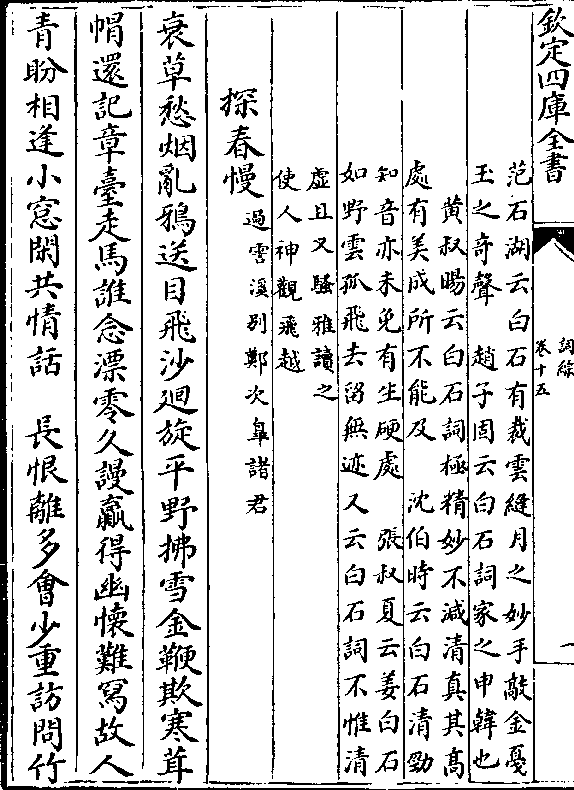 欽定四庫全書
詞綜
卷十五
一
范石湖云白石有裁雲縫月之妙手敲金戛
玉之奇聲 趙子固云白石詞家之申韓也
黄叔暘云白石詞極精妙不減清真其髙
處有美成所不能及 沈伯時云白石清勁
知音亦未免有生硬處 張叔夏云姜白石
如野雲孤飛去留無迹又云白石詞不惟清
虚且又騷雅讀之
使人神觀飛越
探春慢過霅溪别鄭次臯諸君
衰草愁烟亂鴉送目飛沙廻旋平野拂雪金鞭欺寒茸
帽還記章臺走馬誰念漂零久謾贏得幽懷難冩故人
青盼相逢小窓閑共情話 長恨離多會少重訪問竹